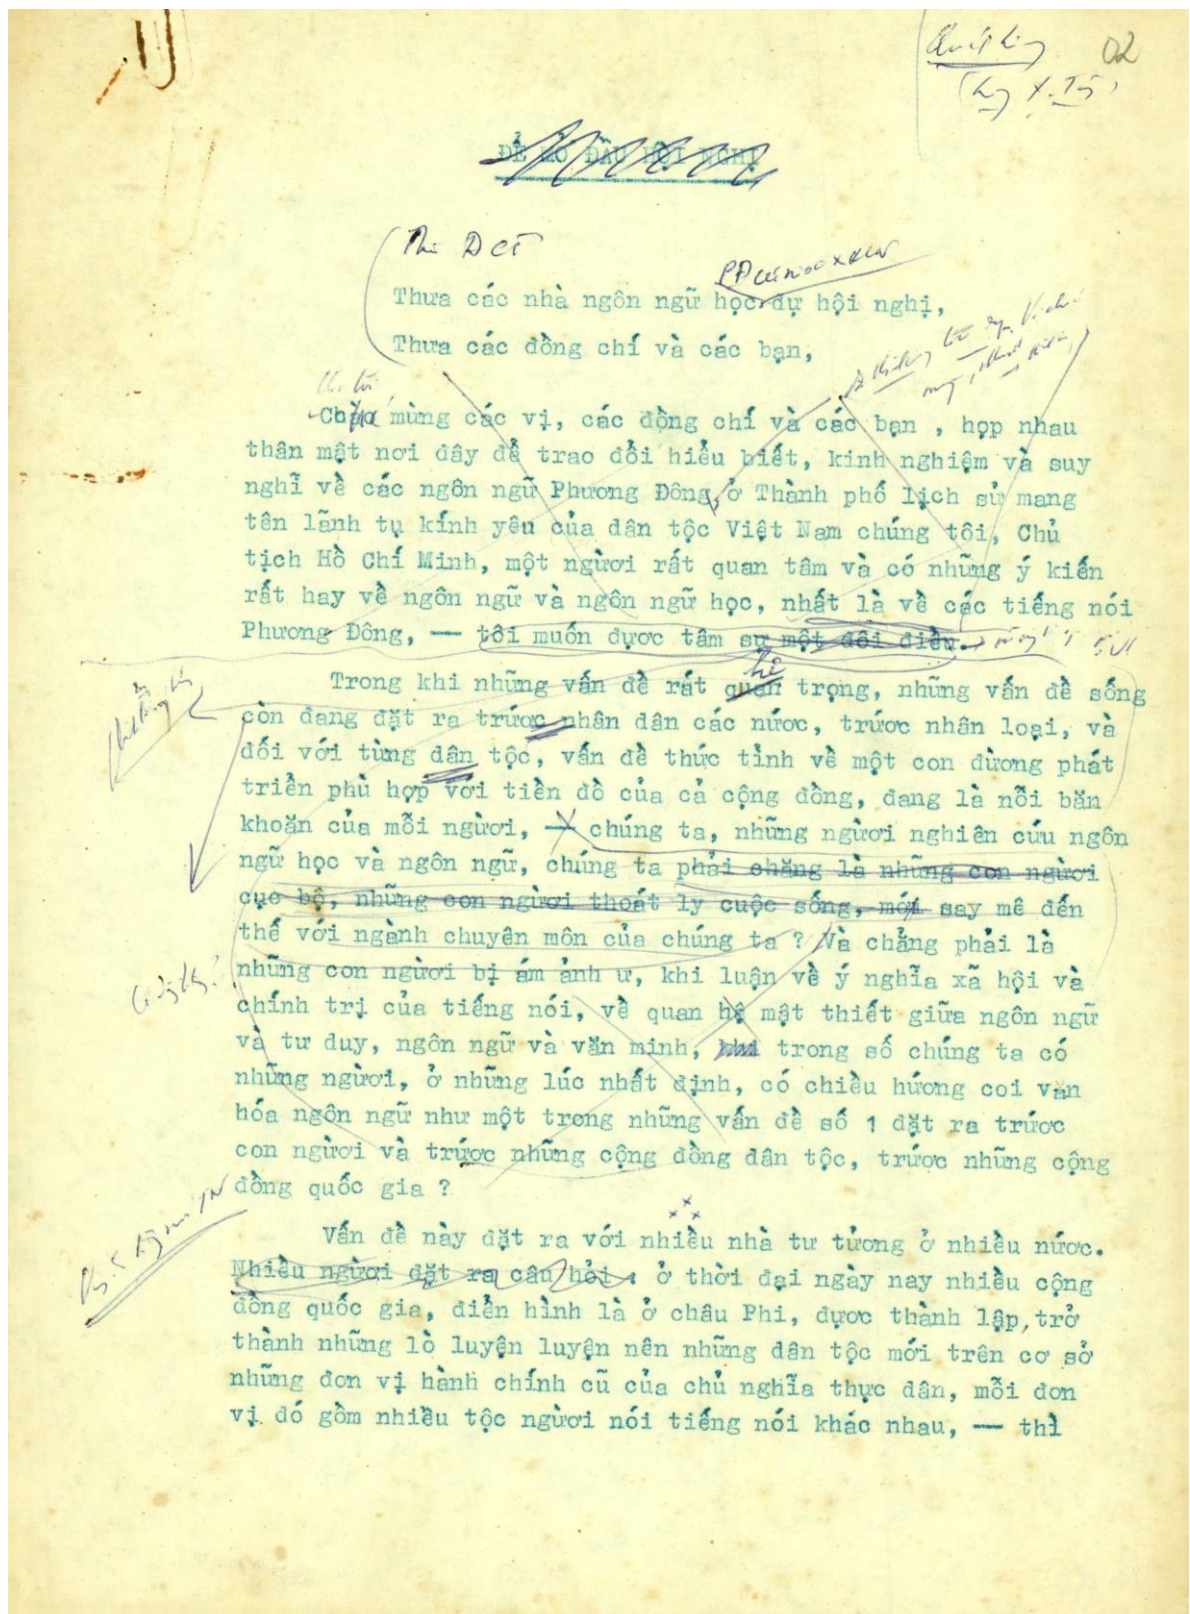 02
Thưa các nhà ngôn ngữ học dự hội nghị,
Thưa các đồng chí và các bạn,
Chào mừng các vị, các đồng chí và các bạn , họp nhau
thân mật nơi đây để trao đổi hiểu biết, kinh nghiệm và suy
nghĩ về các ngôn ngữ Phương Đông, ở Thành phố lịch sử mang
tên lãnh tụ kính yêu của dân tộc Việt Nam chúng tôi, Chủ
tịch Hồ Chí Minh, một người rất quan tâm và có những ý kiến
rất hay về ngôn ngữ và ngôn ngữ học, nhất là về các tiếng nói
Phương Đông, — tôi muốn được tâm sự một đôi điều.
Trong khi những vấn đề rất quan trọng, những vấn đề sống
còn đang đặt ra trước nhân dân các nước, trước nhân loại, và
đối với từng dân tộc, vấn đề thức tỉnh về một con đường phát
triển phù hợp với tiền đồ của cả cộng đồng, đang là nỗi băn
khoăn của mỗi người, — chúng ta, những người nghiên cứu ngôn
ngữ học và ngôn ngữ, chúng ta phải chăng là những con người
cục bộ, những con người thoát ly cuộc sống, mới say mê đến
thế với ngành chuyên môn của chúng ta ? Và chẳng phải là
những con người bị ám ảnh ư, khi luận về ý nghĩa xã hội và
chính trị của tiếng nói, về quan hệ mật thiết giữa ngôn ngữ
và tư duy, ngôn ngữ và văn minh, trong số chúng ta có
những người, ở những lúc nhất định, có chiều hướng coi văn
hóa ngôn ngữ như một trong những vấn đề số 1 đặt ra trước
con người và trước những cộng đồng dân tộc, trước những cộng
đồng quốc gia ?
Vấn đề này đặt ra với nhiều nhà tư tưởng ở nhiều nước.
Nhiều người đặt ra câu hỏi : ở thời đại ngày nay nhiều cộng
đồng quốc gia, điển hình là ở châu Phi, được thành lập, trở
thành những lò luyện luyện nên những dân tộc mới trên cơ sở
những đơn vị hành chính cũ của chủ nghĩa thực dân, mỗi đơn
vị đó gồm nhiều tộc người nói tiếng nói khác nhau, — thì